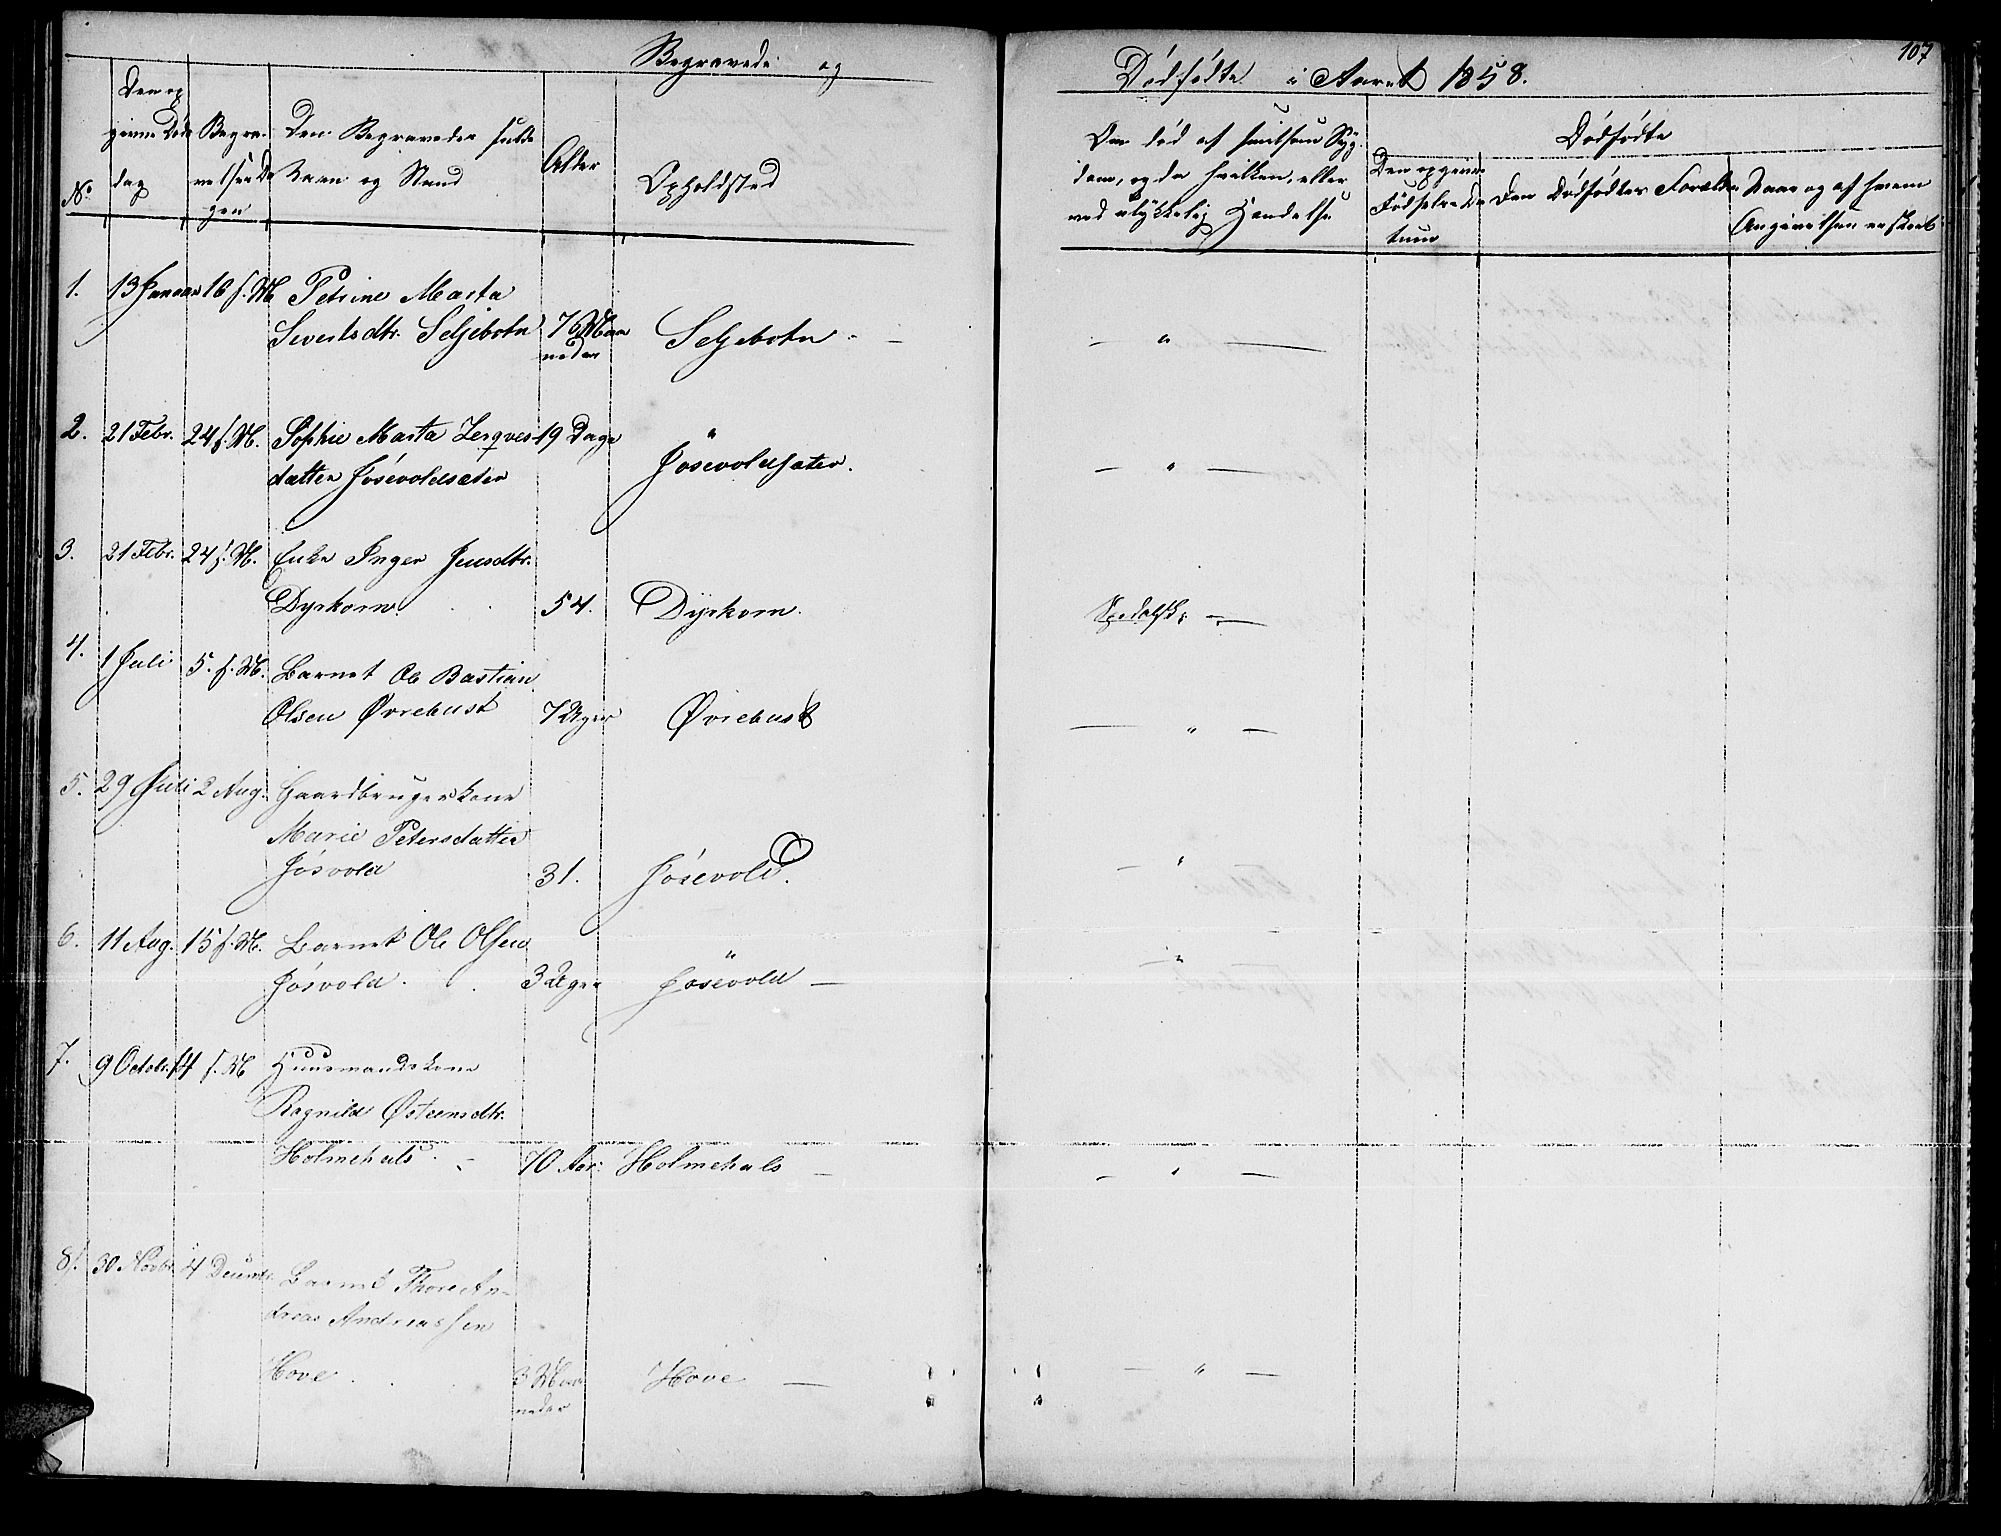 Begravede og
Dødfødte i Aaret 1858.
107
No
Den op
givne Døds
dag
Begra-
velses Da
gen
Den Begravedes fulde
Navn og Stand
Alder
Opholdsted
Om død af smitsom Syg
dom, og da hvilken, eller
ved ulykkelig Hændelse
Dødfødte
Den opgivne
Fødsels-Da
tum
Den Dødfødtes Forældre
Naar og af hvem
Angivelsen er skeet
1. 13 Januar 16 s. M. Petrine Marta
Sivertsdtr. Seljebotn 7 Maa
neder Seljebotn - " -
2. 21 Febr. 24 s. M. Sophie Marta
datter Jøsevoldsæter 19 Dage Jøsevoldsæter. - " -
3. 21 Febr. 24 s. M. Enke Inger Jensdtr.
Dyrkorn. 54. Dyrkorn. Spedalsk: -
4. 1 Juli 5. s. M. Barnet Ole Bastian
Olsen Øvrebust 7 Uger Øvrebust - " -
5. 29 Juli 2 Aug. Gaardbrugerkone
Marie Petersdatter
Jøsvold 31. Jøsevold. - " -
6. 11 Aug. 15 s. M. Barnet Ole Olsen
Jøsvold. 3 Uger Jøsevold - " -
7. 9 Octobr. 14 s. M Huusmandskone
Ragnild Østensdtr.
Holmehals - 70 Aar: Holmehals - " -
8. 30 Novbr. 4 Decembr. Barnet Thore An-
dreas Andreassen
Hove. 3 Maa
neder Hove - " -